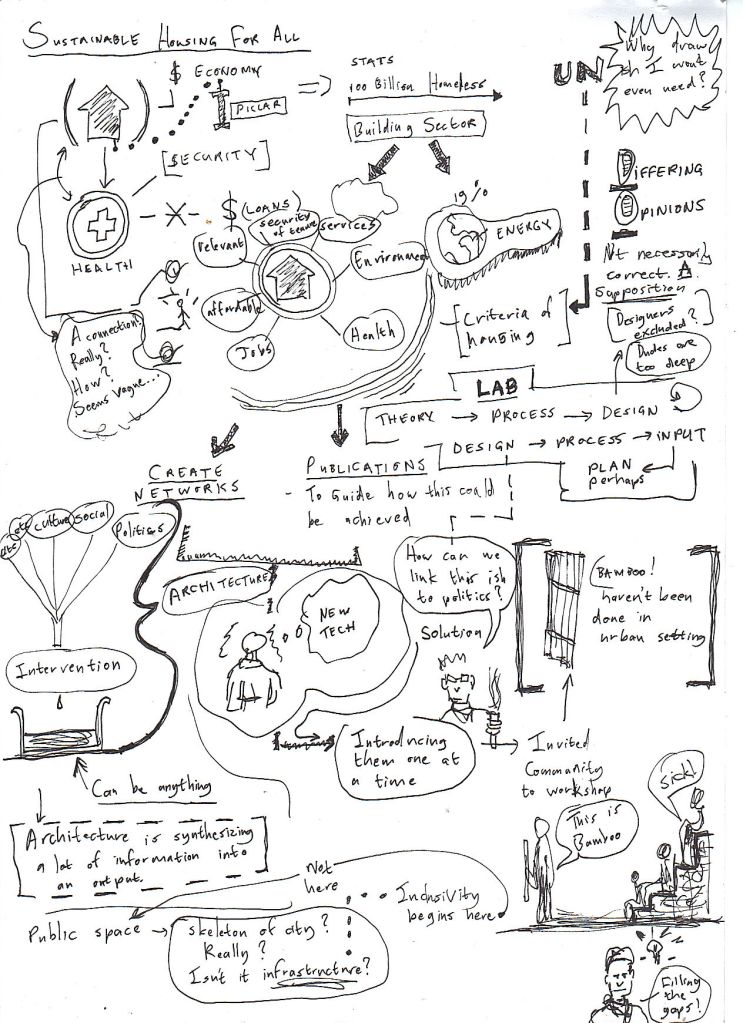 SUSTAINABLE HOUSING FOR ALL
$ ECONOMY
PILLAR
[SECURITY]
HEALTH
A connection?
Really?
How?
Seems vague...
STATS
100 Billion Homeless
Building Sector
$ (LOANS)
security
of tenure
services
relevant
Environment
affordable
Jobs
Health
19%
ENERGY
UN
Criteria of
housing
Why draw
sh I wont
even need?
DIFFERING
OPINIONS
Not necessarily
correct. A
supposition
Designers
excluded?
Dudes are
too deep
LAB
THEORY → PROCESS → DESIGN
DESIGN → PROCESS → INPUT
PLAN
perhaps
CREATE
NETWORKS
PUBLICATIONS
- To Guide how this could
be achieved
etc
etc
culture
social
Politics
Intervention
Can be anything
Architecture is synthesizing
a lot of information into
an output.
ARCHITECTURE
NEW
TECH
How can we
link this ish
to politics?
Solution
Introducing
them one at
a time
BAMBOO!
haven't been
done in
urban setting
Invited
Community
to workshop
This is
Bamboo
sick!
Not
here
Inclusivity
begins here
Public space →
skeleton of city?
Really?
Isn't it infrastructure?
Filling
the
gaps!